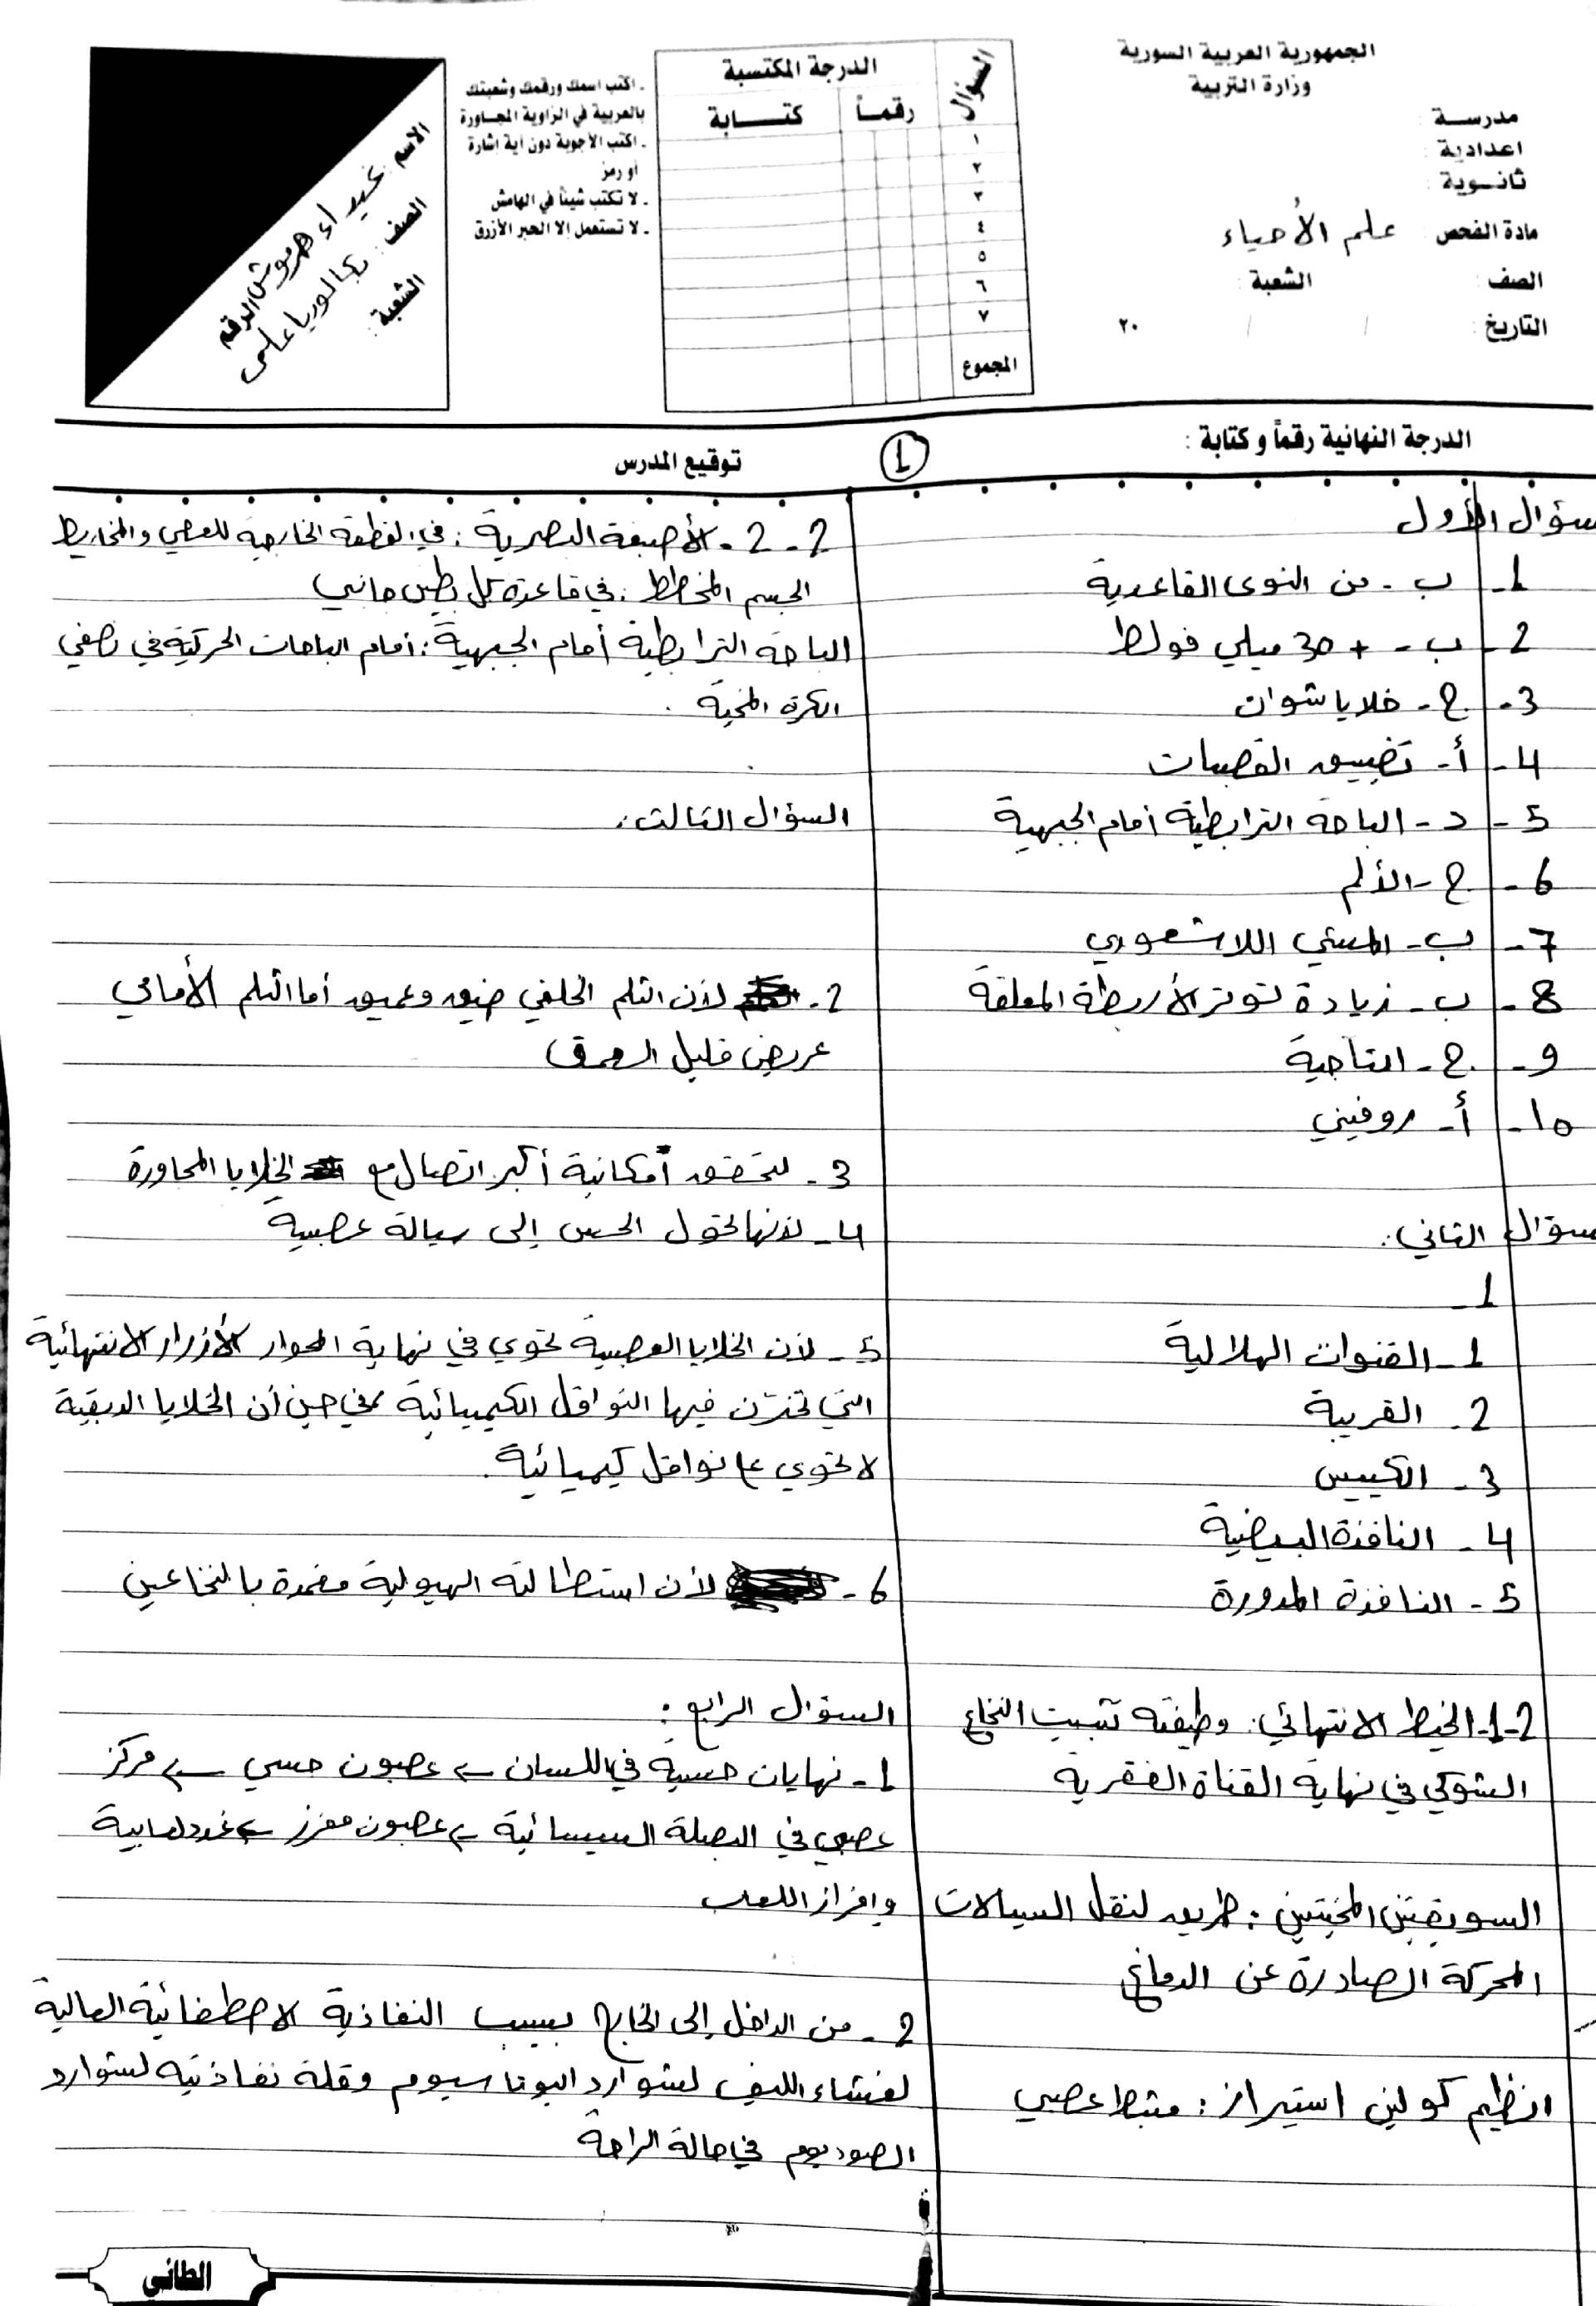 الجمهورية العربية السورية
وزارة التربية
مدرســة :
اعدادية :
ثانـوية :
مادة الفحص علم الأحياء
الصف : الشعبة :
التاريخ : / / ٢٠
السؤال
الدرجة المكتسبة
رقمـاً كتـــابة
١
٢
٣
٤
٥
٦
٧
المجموع
ـ اكتب اسمك ورقمك وشعبتك
بالعربية في الزاوية المجـاورة
ـ اكتب الأجوبة دون أية اشارة
أو رمز
ـ لا تكتب شيئاً في الهامش
ـ لا تستعمل إلا الحبر الأزرق
الاسم : غيداء هرموش الرقم
الصف : بكالوريا علمي
الشعبة :
الدرجة النهائية رقماً و كتابة :
1
توقيع المدرس
سؤال الأول
1- ب - من النوى القاعدية
2- ب - + 30 ميلي فولط
3- ج - خلايا شوان
4- أ - تضييق القصبات
5- د - الباحة الترابطية أمام الجبهية
6- ج - الألم
7- ب - الحسي اللاشعوري
8- ب - زيادة توتر الأربطة المعلقة
9- ج - التاجية
10- أ - روفيني
سؤال الثاني :
1-
1- القنوات الهلالية
2- القريبة
3- الكييس
4- النافذة البيضية
5- النافذة المدورة
2-1- الخيط الانتهائي : وظيفته تثبيت النخاع
الشوكي في نهاية القناة الفقرية
السويقتين المخيتين : طريق لنقل السيالات
المحركة الصادرة عن الدماغ
انظيم كولين استيراز : مثبط عصبي
2-2- الأصبغة البصرية : في القطعة الخارجية للعصي والمخاريط
الجسم المخطط : في قاعدة كل بطين جانبي
الباحة الترابطية أمام الجبهية : أمام الباحات الحركية في نصفي
الكرة المخية .
السؤال الثالث :
2- لأن الثلم الخلفي ضيق وعميق أما الثلم الأمامي
عريض قليل العمق
3- لتحقق أمكانية أكبر اتصال مع الخلايا المجاورة
4- لأنها تحول الحس إلى سيالة عصبية
5- لأن الخلايا العصبية تحوي في نهاية المحوار الأزرار الانتهائية
التي تختزن فيها النواقل الكيميائية في حين أن الخلايا الدبقية
لا تحوي ع نواقل كيميائية .
6- لأن استطالته الهيولية مغمدة بالنخاعين
السؤال الرابع :
1- نهايات حسية في اللسان ← عصبون حسي ← مركز
عصبي في البصلة السيسائية ← عصبون مفرز ← غدد لعابية
وإفراز اللعاب
2- من الداخل إلى الخارج بسبب النفاذية الاصطفائية العالية
لغشاء الليف لشوارد البوتاسيوم وقلة نفاذيته لشوارد
الصوديوم في حالة الراحة
الطائي